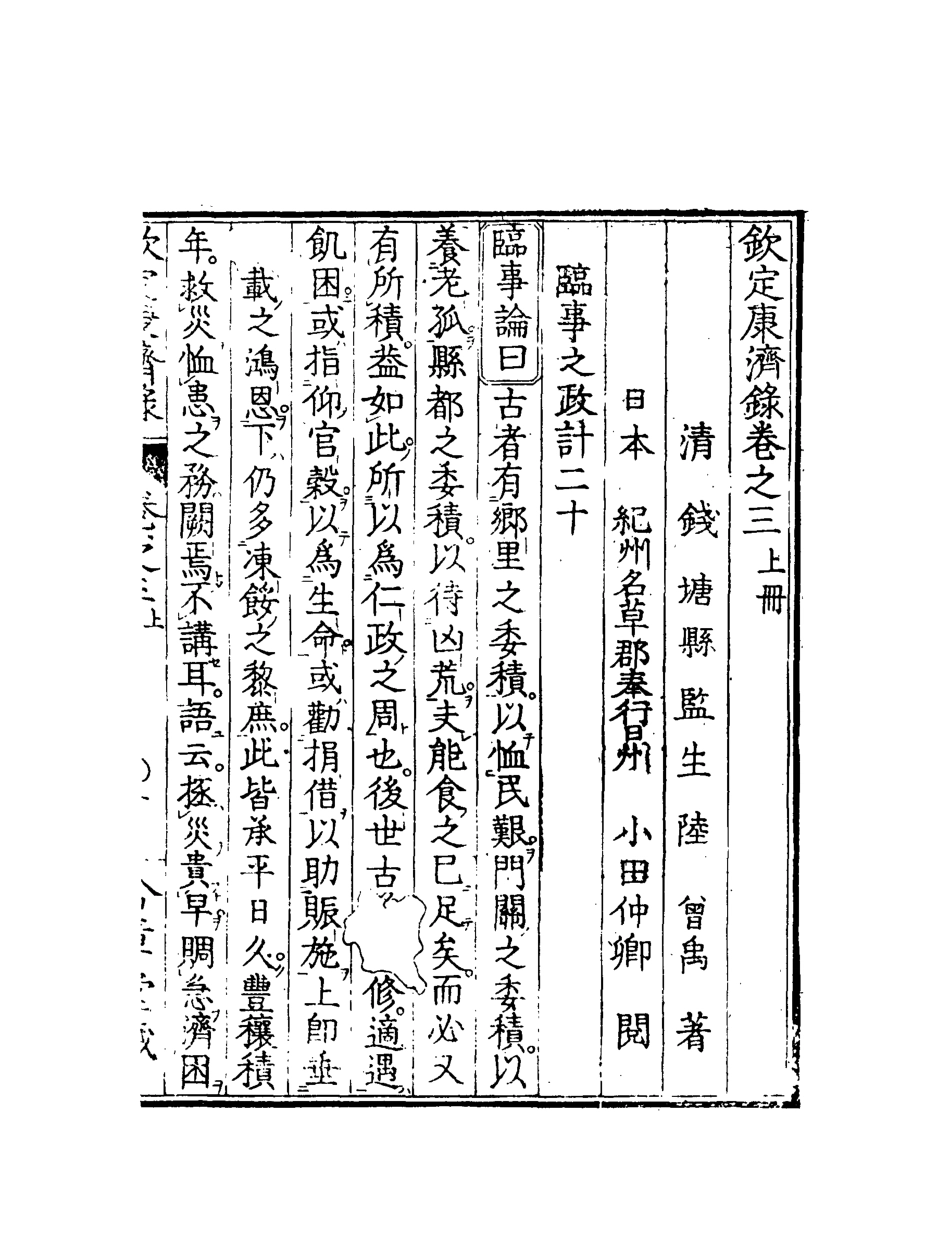 欽定康濟錄卷之三上冊
清 錢塘縣監生 陸曾禹 著
日本 紀州名草郡奉行 小田仲卿 閱
臨事之政計二十
臨事論曰古者有鄉里之委積。以恤民艱。門關之委積。以
養老孤縣都之委積。以待凶荒。夫能食之已足矣。而必又
有所積。益如此。所以爲仁政之周也。後世古修。適遇
飢困。或指仰官穀。以爲生命。或勸捐借以助賑施。上卽垂
載之鴻恩。下仍多凍餒之黎庶。此皆承平日久。豐穰積
年。救災恤患之務闕焉不講耳。語云。拯災貴早。賙急濟困